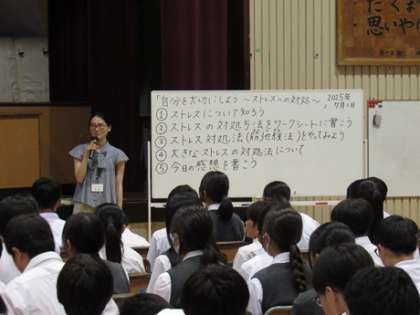 「自分を大切にしよう 〜ストレスへの対処〜」 2025年
7月1日
① ストレスについて知ろう
② ストレスの対処方法をワークシートに書こう
③ ストレス対処法(筋弛緩法)をやってみよう
④ 大きなストレスの対処法について
⑤ 今日の感想を書こう
たくま
思いや